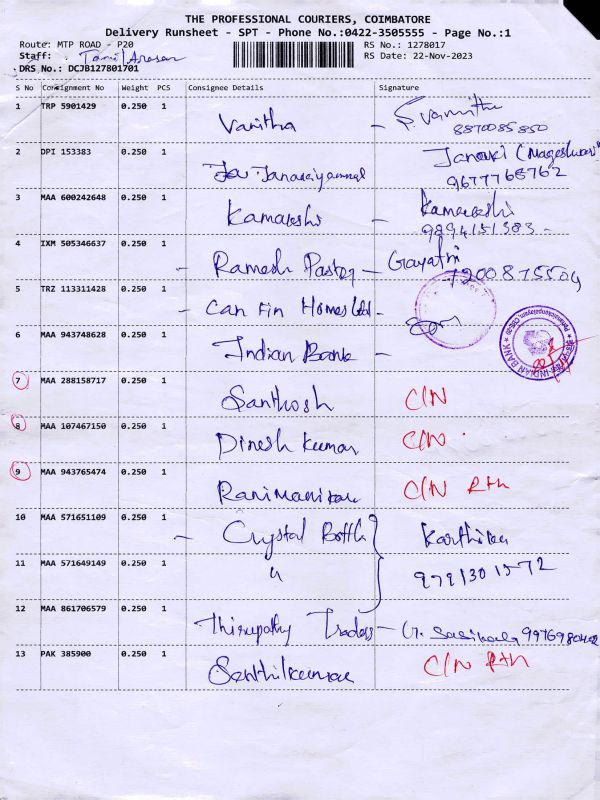 THE PROFESSIONAL COURIERS, COIMBATORE
Delivery Runsheet - SPT - Phone No.:0422-3505555 - Page No.:1
Route: MTP ROAD - P20 RS No.: 1278017
Staff: Tamil Arasan RS Date: 22-Nov-2023
DRS No.: DCJB127801701
S No Consignment No Weight PCS Consignee Details Signature
1 TRP 5901429 0.250 1 Vanitha - S. Vanitha
8870085850
2 DPI 153383 0.250 1 Janakiyammal Janaki (Mageshwari)
9677768762
3 MAA 600242648 0.250 1 Kamakshi - Kamakshi
9894151383 -
4 IXM 505346637 0.250 1 - Ramesh Pastor - Gayatri
7200875504
5 TRZ 113311428 0.250 1 - Can Fin Homes Ltd -
6 MAA 943748628 0.250 1 Indian Bank -
INDIAN BANK
7 MAA 288158717 0.250 1 Santhosh C/N
8 MAA 107467150 0.250 1 Dinesh Kumar C/N
9 MAA 943765474 0.250 1 Ranimanikam C/N Rtn
10 MAA 571651109 0.250 1 - Crystal Bottle Karthika
11 MAA 571649149 0.250 1 " 9791301572
12 MAA 861706579 0.250 1 Thirupathy Traders - G. Sasikala
13 PAK 385900 0.250 1 Senthilkumar C/N Rtn